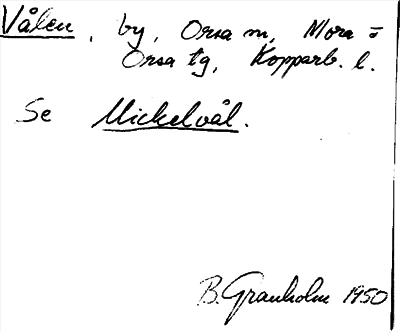 Vålen, by, Orsa m, Mora =
Orsa tg, Kopparb. l.
Se Mickelvål.
B. Granholm 1950